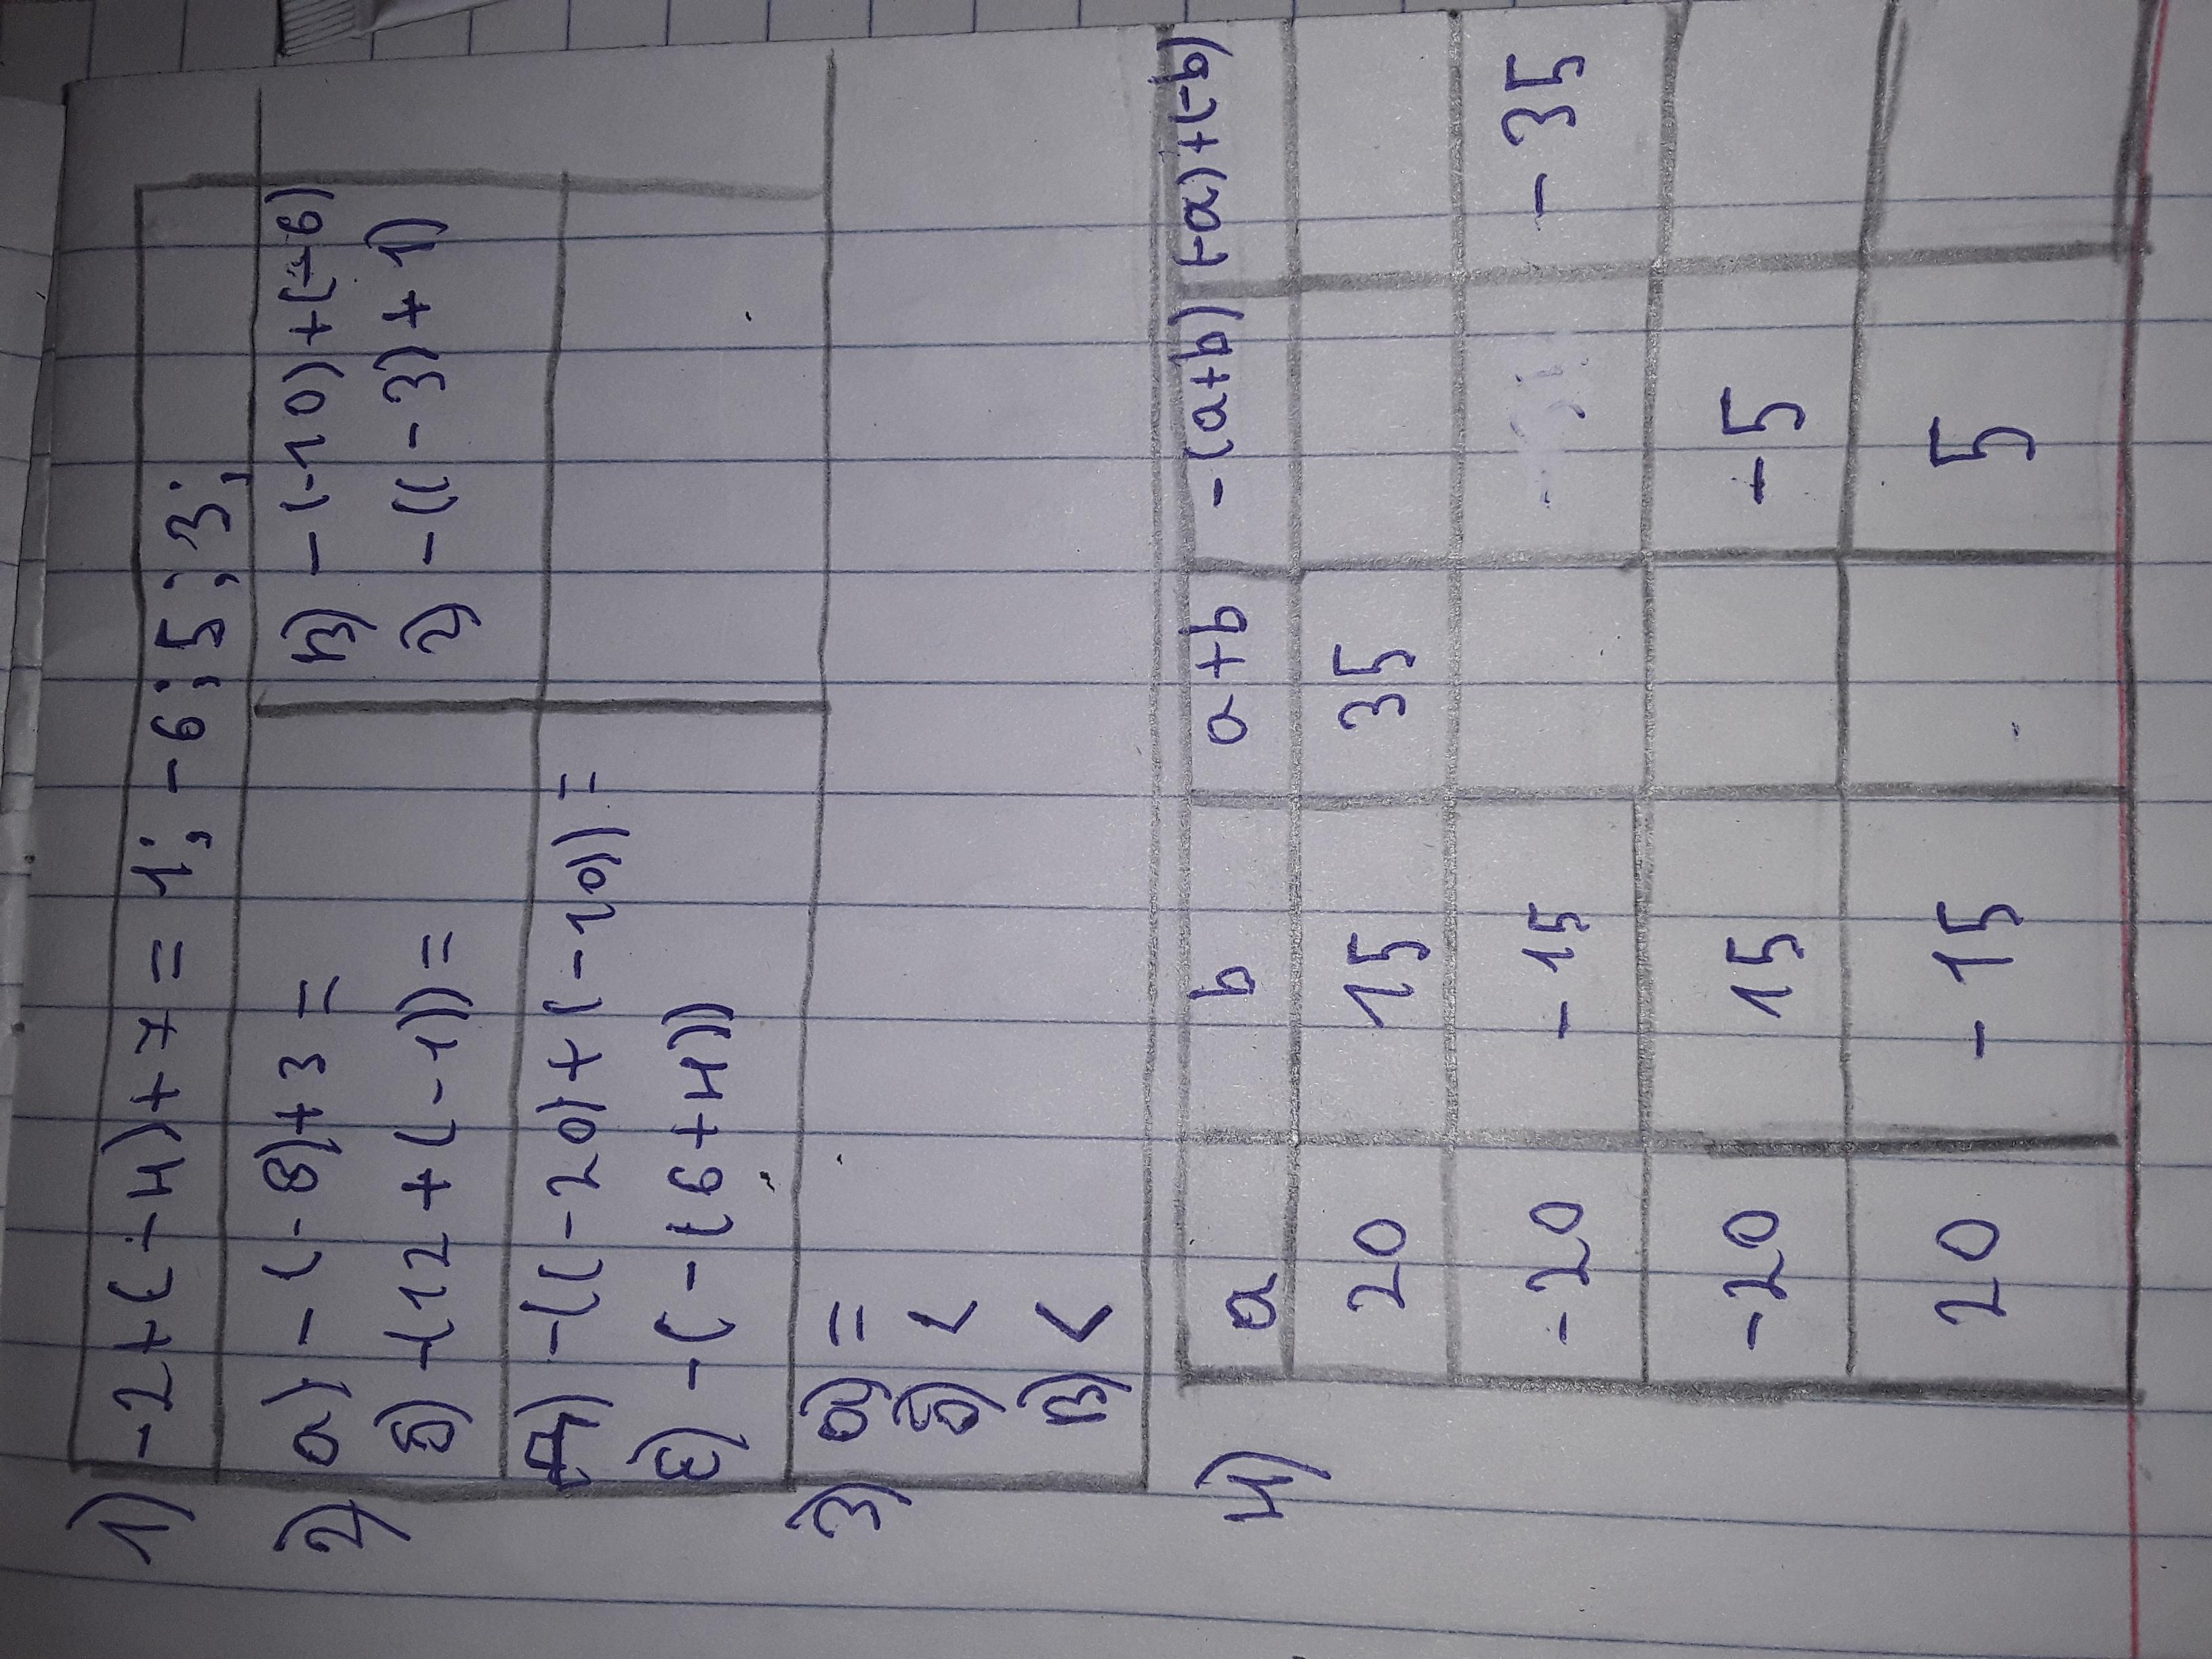 1) -2+(-4)+7=1; -6; 5; 3;
2) a) -(-8)+3= в) -(-10)+(-6)
б) -(12+(-1))= г) -((-3)+1)
д) -((-20)+(-10))=
е) -(-(6+4))
3) а) =
б) <
в) <
4) a b a+b -(a+b) (-a)+(-b)
20 15 35
-20 -15 -35
-20 15 -5
20 -15 5